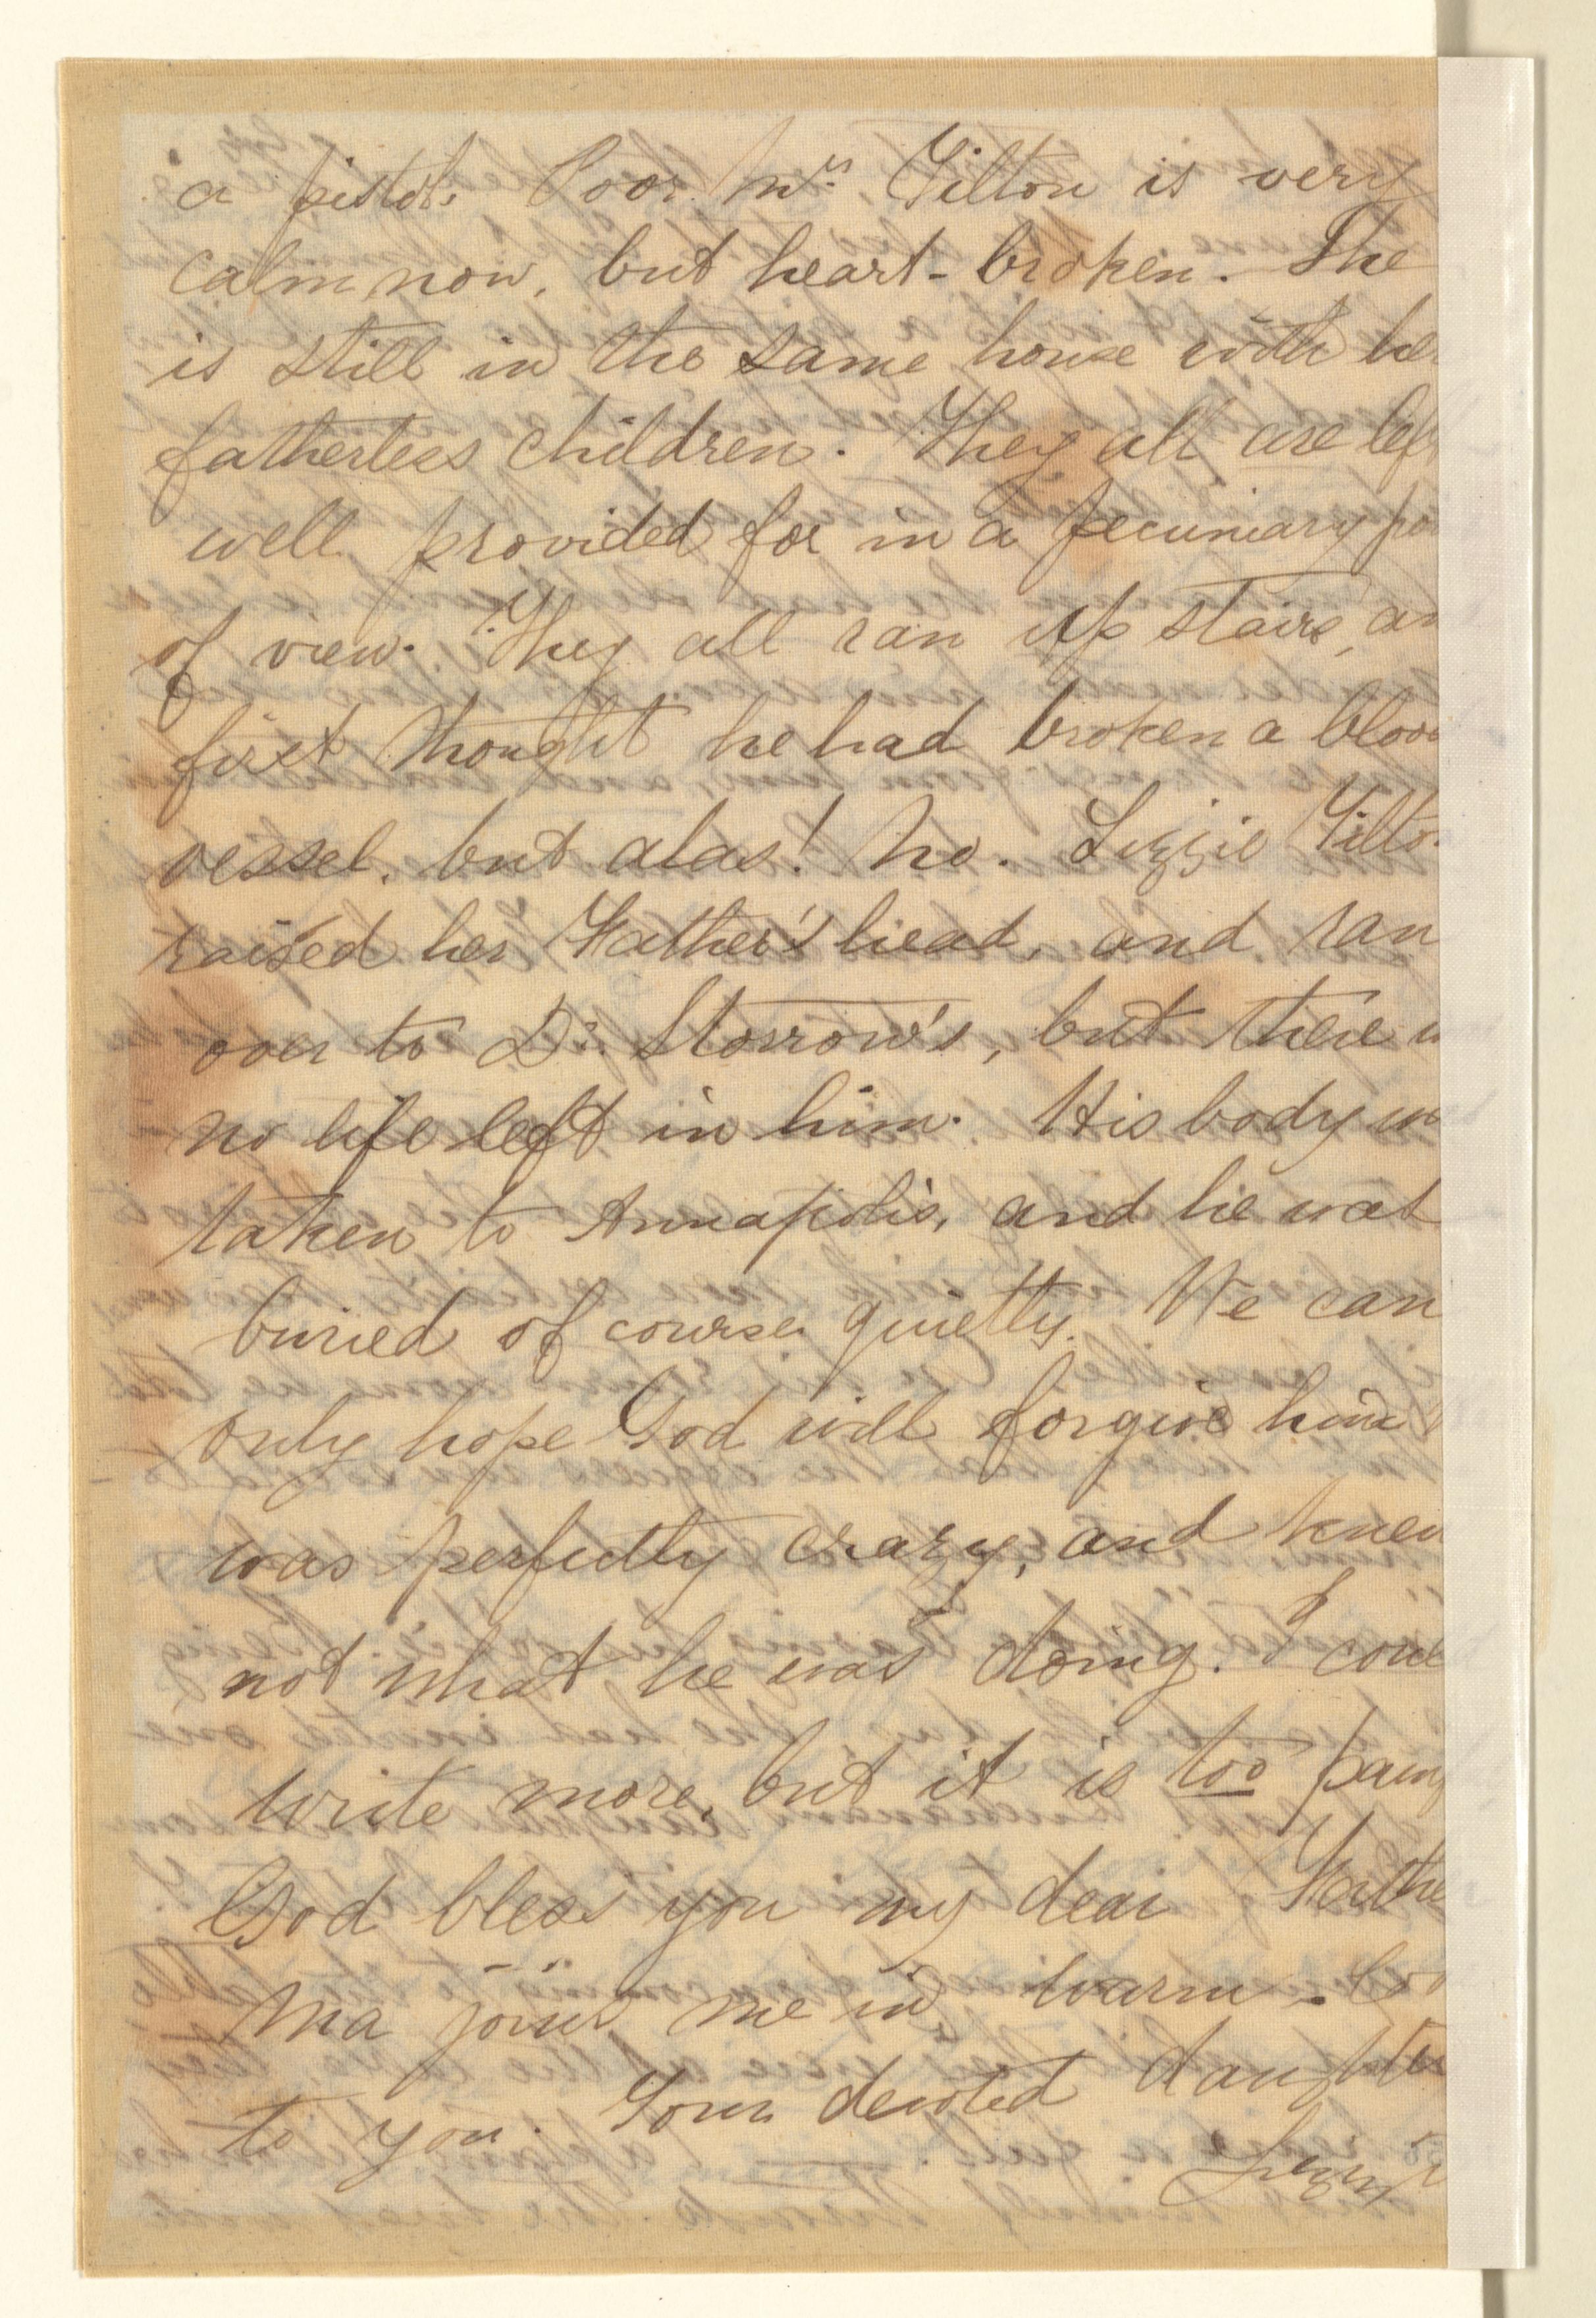 a pistol. Poor Mrs. Tilton is very
calm now, but heart-broken. She
is still in the same house with he
fatherless children. They all are lef
well provided for in a pecuniary po
of view. They all ran up stairs, an
first thought he had broken a bloo
vessel, but alas! no. Lizzie Tilto
raised her Father's head, and ran
over to Dr. Storrow's, but there w
no life left in him. His body w
taken to Annapolis, and he was
buried of course quietly. We can
only hope God will forgive him
was perfectly crazy, and knew
not what he was doing. I coul
write more, but it is too pain
God bless you my dear Fathe
Ma joins me in warm lo
to you. Your devoted daughter